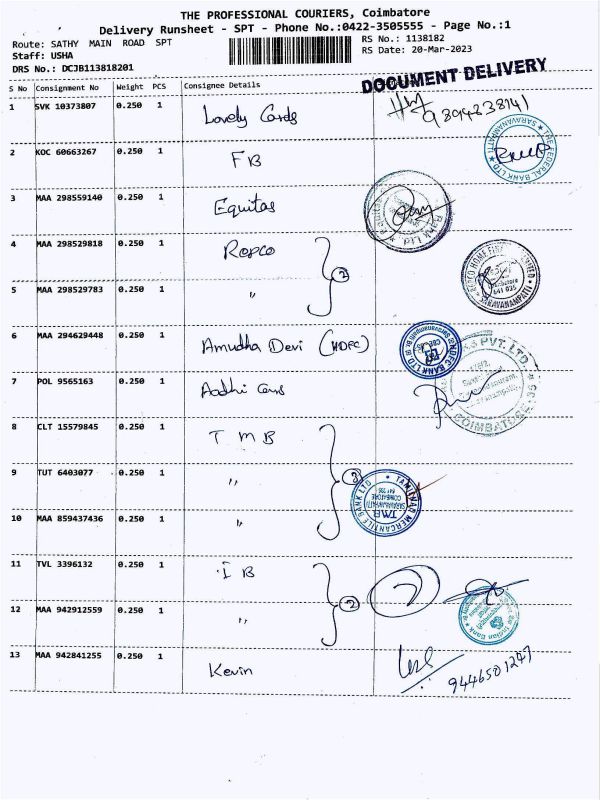 THE PROFESSIONAL COURIERS, Coimbatore
Delivery Runsheet - SPT - Phone No.:0422-3505555 - Page No.:1
Route: SATHY MAIN ROAD SPT
RS No.: 1138182
Staff: USHA
RS Date: 20-Mar-2023
DRS No.: DCJB113818201
DOCUMENT DELIVERY
S No Consignment No Weight PCS Consignee Details
1 SVK 10373807 0.250 1 Lovely Cards
2 KOC 60663267 0.250 1 FB
THE FEDERAL BANK LTD SARAVANAMPATTI
3 MAA 298559140 0.250 1 Equitas
4 MAA 298529818 0.250 1 Repco
5 MAA 298529783 0.250 1 " 2
641 035 SARAVANAMPATTI
6 MAA 294629448 0.250 1 Amudha Devi (HDFC)
HDFC BANK LTD
7 POL 9565163 0.250 1 Aadhi Cars
PVT. LTD. COIMBATORE-35
8 CLT 15579845 0.250 1 TMB
9 TUT 6403077 0.250 1 " 3
10 MAA 859437436 0.250 1 "
TAMILNAD MERCANTILE BANK LTD
SARAVANAMPATTI
COIMBATORE
TMB
11 TVL 3396132 0.250 1 IB
12 MAA 942912559 0.250 1 " 2
Indian Bank
13 MAA 942841255 0.250 1 Kevin
9446501247